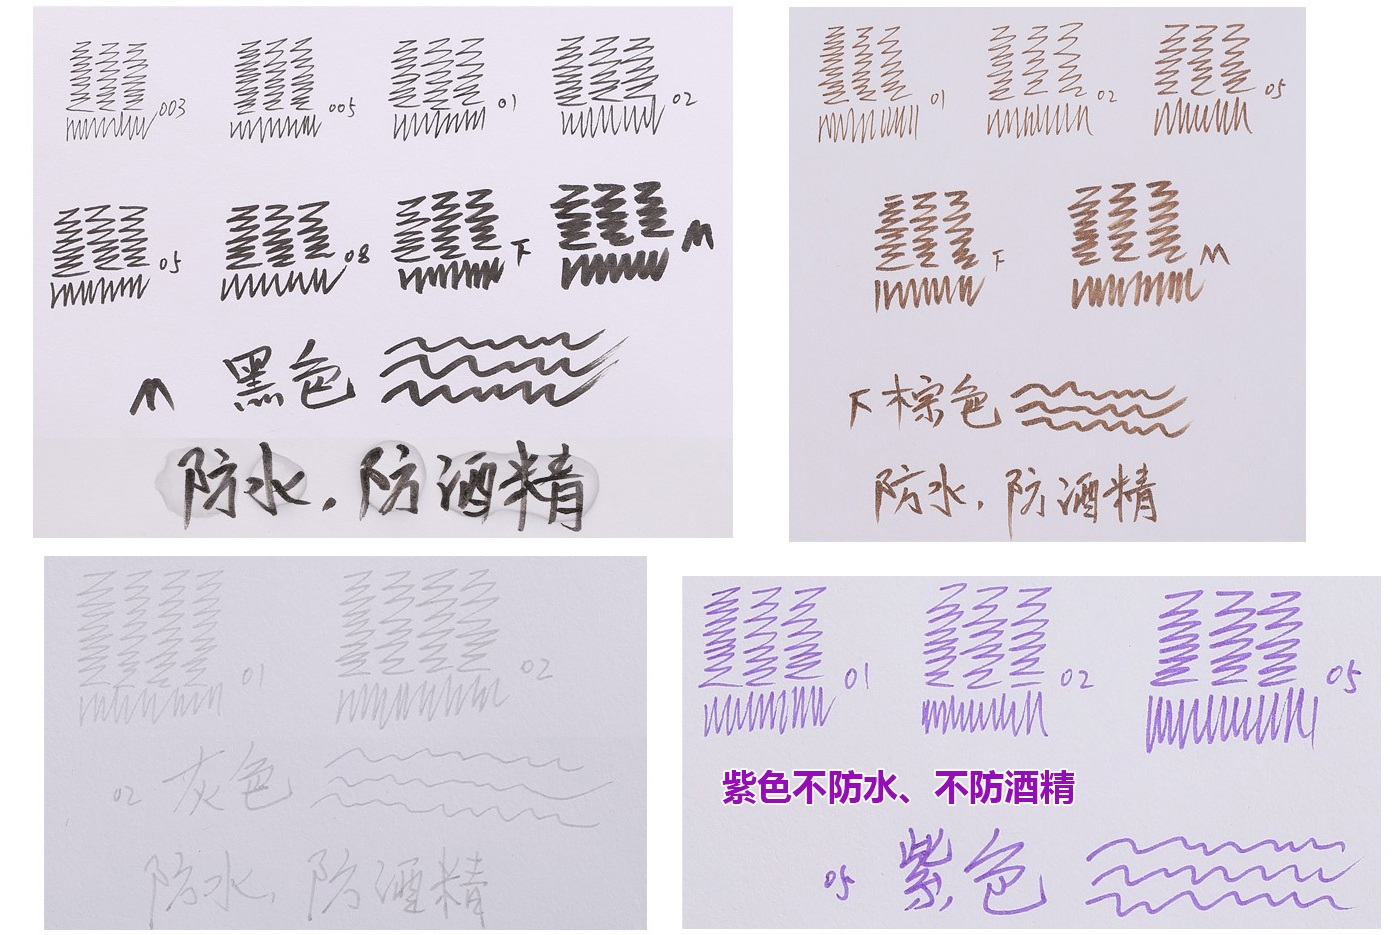 003 005 01 02
05 08 F M
M 黑色
防水，防酒精
01 02 05
F M
F 棕色
防水，防酒精
01 02
02 灰色
防水，防酒精
01 02 05
紫色不防水、不防酒精
05 紫色